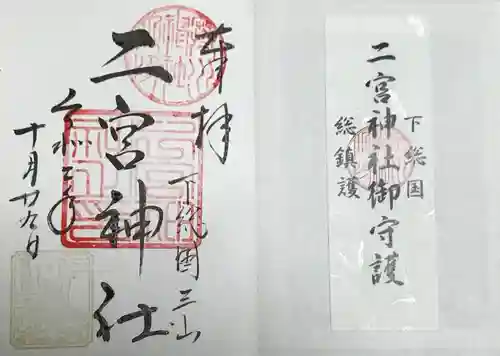 奉拝
下総国三山
二宮神社
令和二年
十月廿九日
下総国
二宮神社御守護
総鎮護